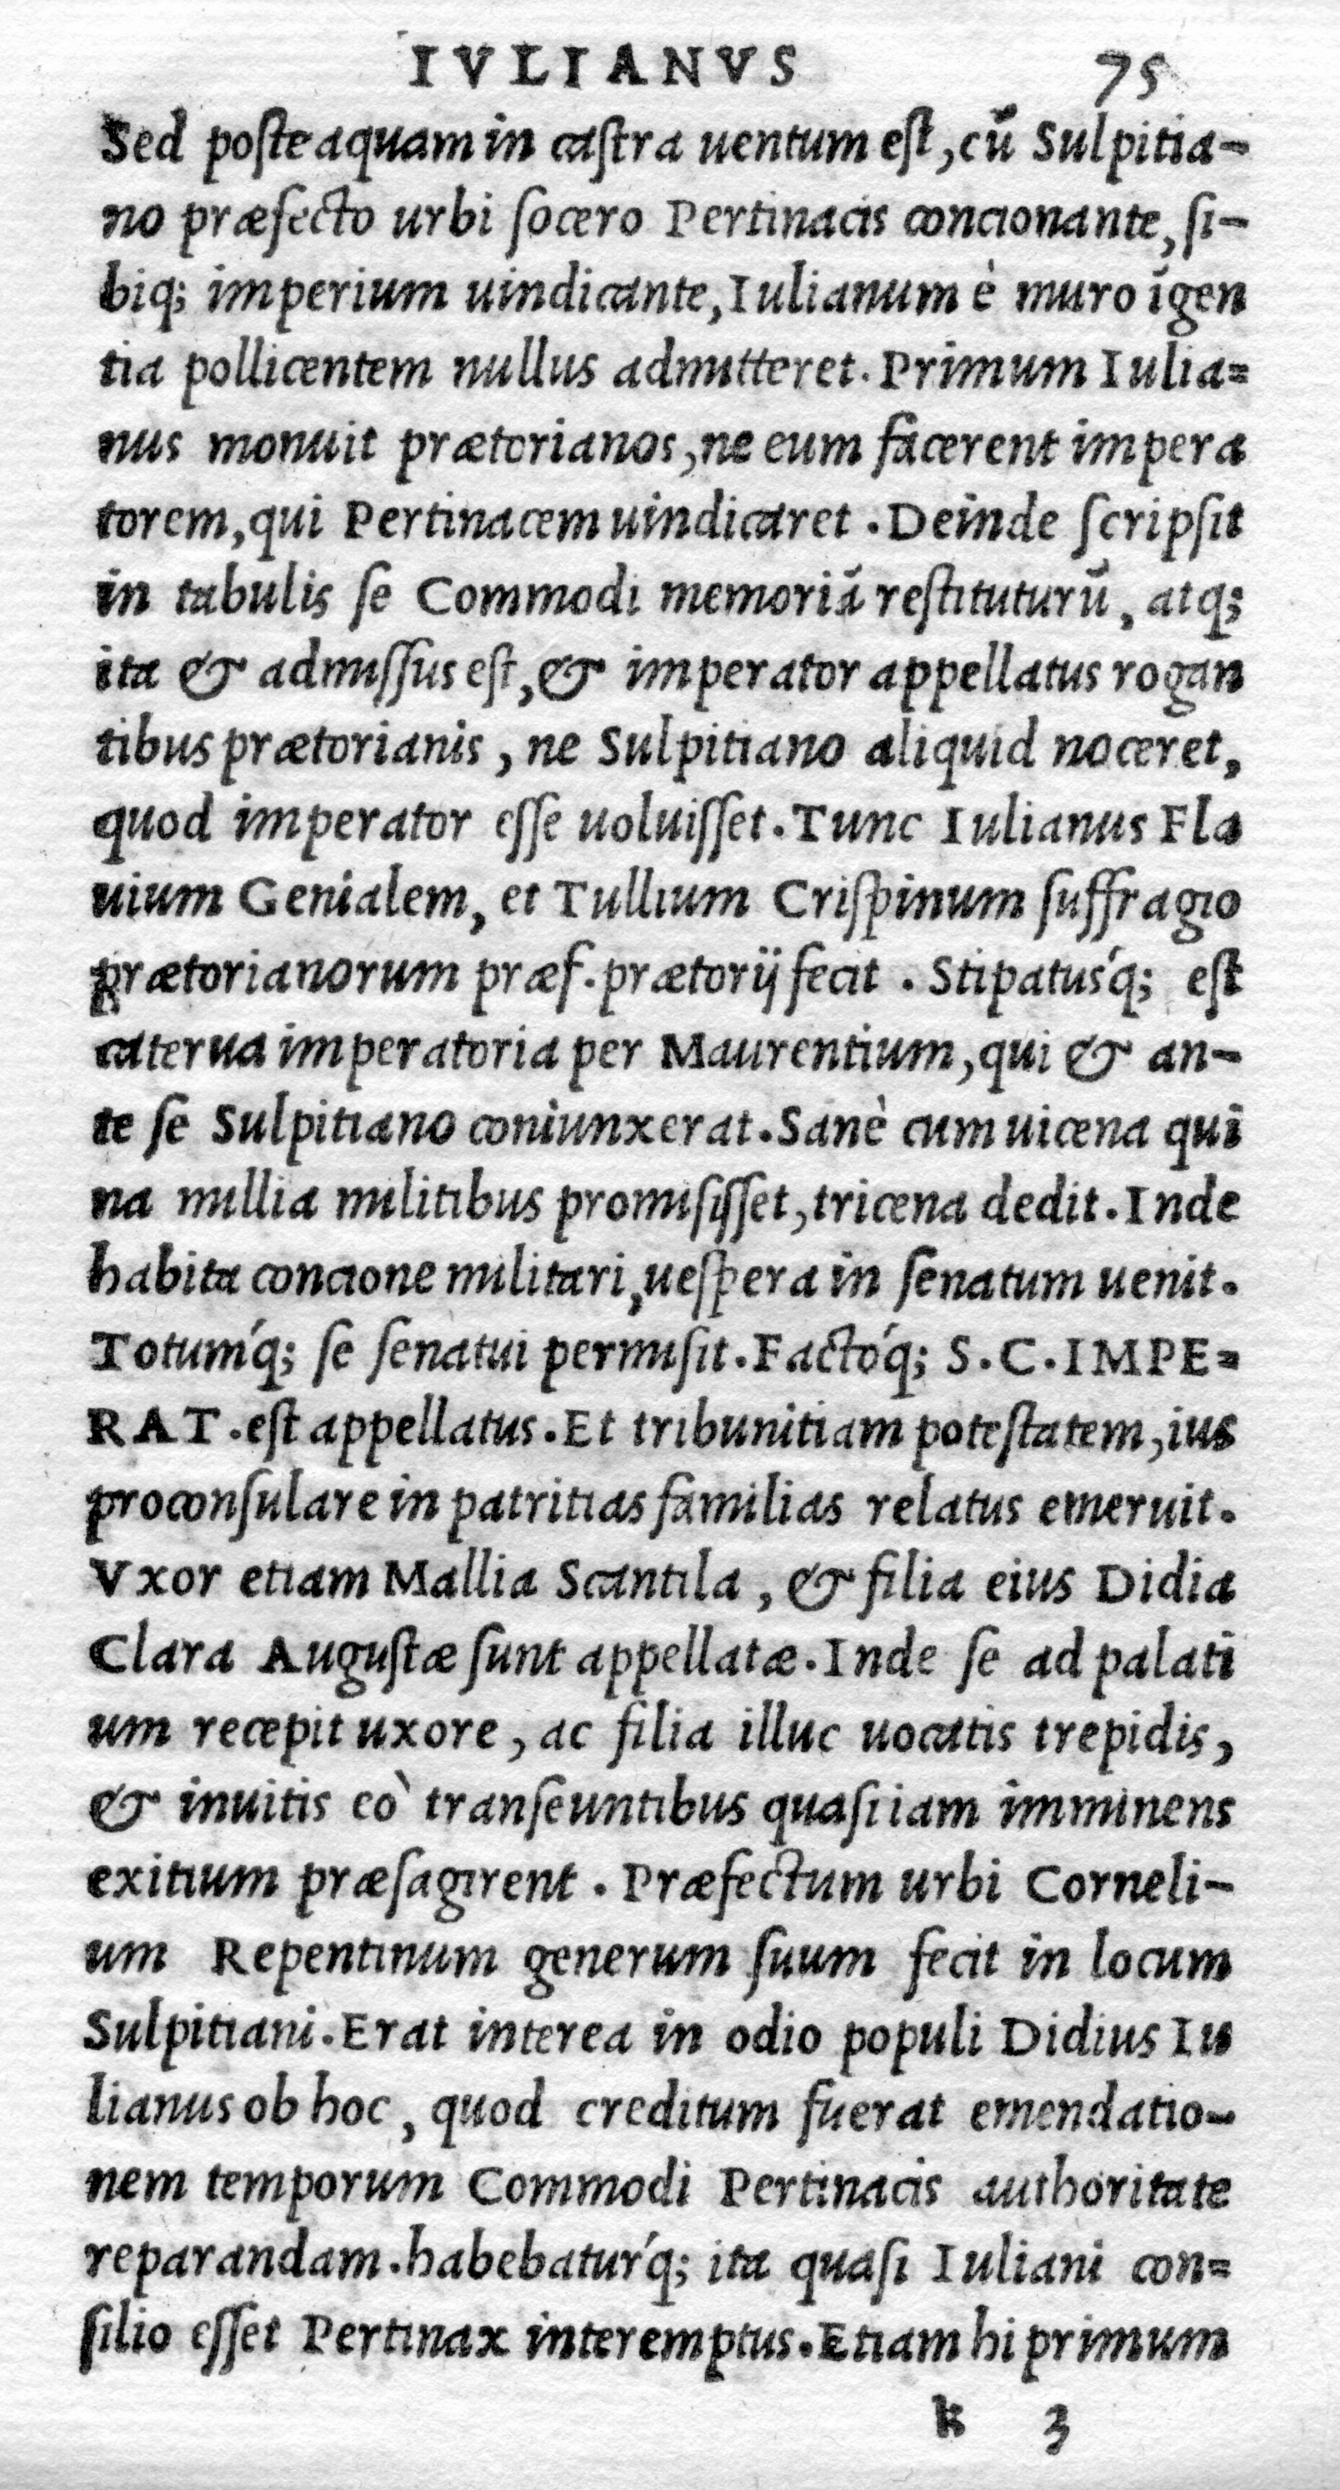 IVLIANVS 75
Sed posteaquam in castra uentum est, cū Sulpitia-
no præfecto urbi socero Pertinacis concionante, si-
biq; imperium uindicante, Iulianum è muro īgen
tia pollicentem nullus admitteret. Primum Iulia=
nus monuit prætorianos, ne eum facerent impera
torem, qui Pertinacem uindicaret. Deinde scripsit
in tabulis se Commodi memoriā restituturū, atq;
ita & admissus est, & imperator appellatus rogan
tibus prætorianis, ne Sulpitiano aliquid noceret,
quod imperator esse uoluisset. Tunc Iulianus Fla
uium Genialem, et Tullium Crispinum suffragio
prætorianorum præf. prætorij fecit. Stipatuśq; est
caterua imperatoria per Maurentium, qui & an-
te se Sulpitiano coniunxerat. Sanè cum uicena qui
na millia militibus promisisset, tricena dedit. Inde
habita concione militari, uespera in senatum uenit.
Totuḿq; se senatui permisit. Factóq; S. C. IMPE=
RAT. est appellatus. Et tribunitiam potestatem, ius
proconsulare in patritias familias relatus emeruit.
Vxor etiam Mallia Scantila, & filia eius Didia
Clara Augustæ sunt appellatæ. Inde se ad palati
um recepit uxore, ac filia illuc uocatis trepidis,
& inuitis eò transeuntibus quasi iam imminens
exitium præsagirent. Præfectum urbi Corneli-
um Repentinum generum suum fecit in locum
Sulpitiani. Erat interea in odio populi Didius Iu
lianus ob hoc, quod creditum fuerat emendatio-
nem temporum Commodi Pertinacis authoritate
reparandam. habebatuŕq; ita quasi Iuliani con=
silio esset Pertinax interemptus. Etiam hi primum
k 3